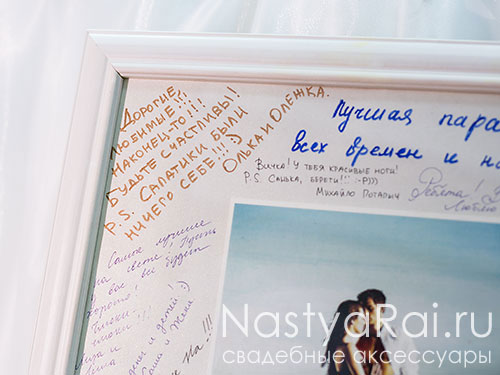 ДОРОГИЕ
ЛЮБИМЫЕ!!!
НАКОНЕЦ-ТО!!!
БУДЬТЕ СЧАСТЛИВЫ!
P.S. САЛАТИКИ БЫЛИ
НИЧЕГО СЕБЕ!!! :)
ОЛЬКА И ОЛЕЖКА.
Лучшая пара
всех времен и на
Вичка! У тебя красивые ноги!
P.S. Санька, берети!!! :-P)))
Михайло Потапыч
Ребята!
Люблю
Самые лучшие
на свете, Пусть
у вас всё будет
хорошо!
и
На !!!
NastyaRai.ru
свадебные аксессуары